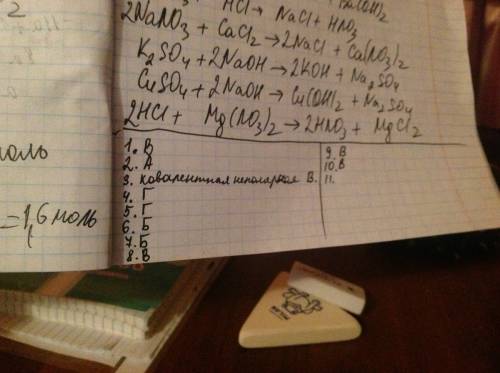 HCl → NaCl + HNO₃
2NaNO₃ + CaCl₂ → 2NaCl + Ca(NO₃)₂
K₂SO₄ + 2NaOH → 2KOH + Na₂SO₄
CuSO₄ + 2NaOH → Cu(OH)₂ + Na₂SO₄
2HCl + Mg(NO₃)₂ → 2HNO₃ + MgCl₂
моль
= 1,6 моль
1. В
2. А
3. ковалентная неполярная В.
4. Г
5. Г
6. Б
7. Б
8. В
9. В
10. В
11.